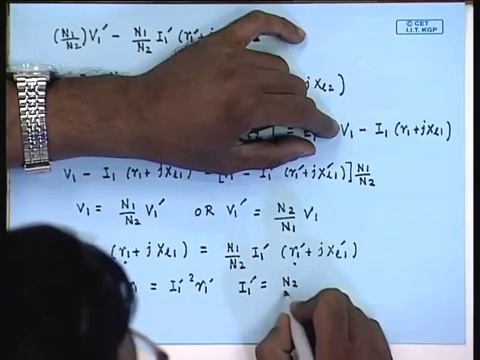 (N1/N2) V1′ − N1/N2 I1′ (r1′ + j
© CET
I.I.T. KGP
xl2)
= V1 − I1 (r1 + j xl1)
V1 − I1 (r1 + j xl1) = [V1′ − I1′ (r1′ + j xl1′)] N1/N2
V1 = N1/N2 V1′ OR V1′ = N2/N1 V1
(r1 + j xl1) = N1/N2 I1′ (r1′ + j xl1′)
= I1′² r1′ I1′ = N2